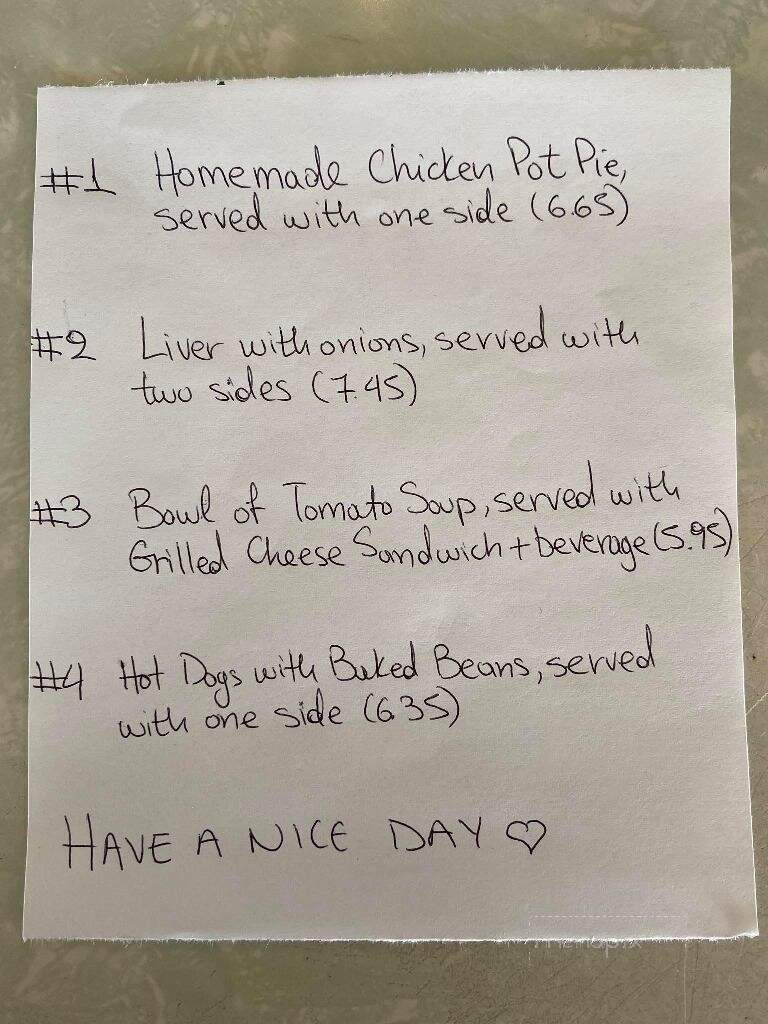 #1 Homemade Chicken Pot Pie,
served with one side (6.65)
#2 Liver with onions, served with
two sides (7.45)
#3 Bowl of Tomato Soup, served with
Grilled Cheese Sandwich + beverage (5.95)
#4 Hot Dogs with Baked Beans, served
with one side (6.35)
HAVE A NICE DAY ♡